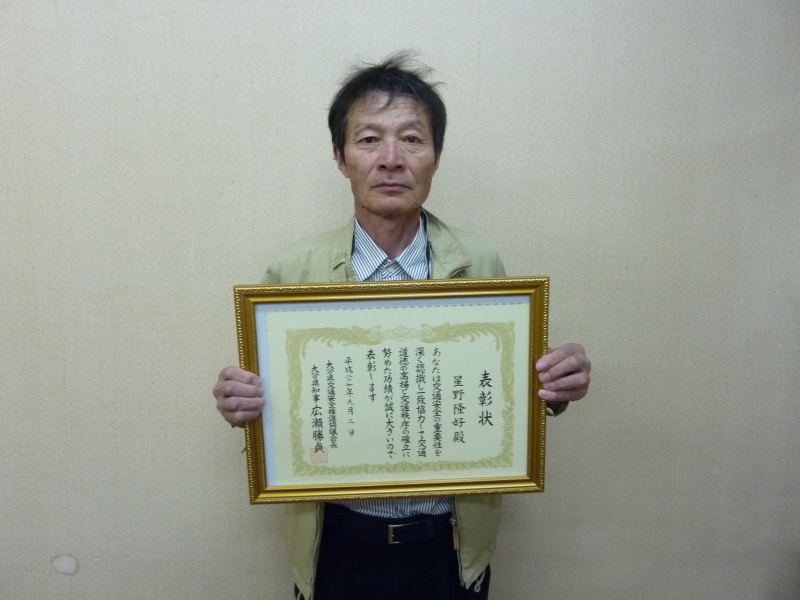 表彰状
星野隆好殿
あなたは交通安全の重要性を
深く認識し一致協力して交通
道徳の高揚と交通秩序の確立に
努めた功績が誠に大きいので
表彰します
平成二十七年九月二日
大分県交通安全推進協議会会長
大分県知事広瀬勝貞